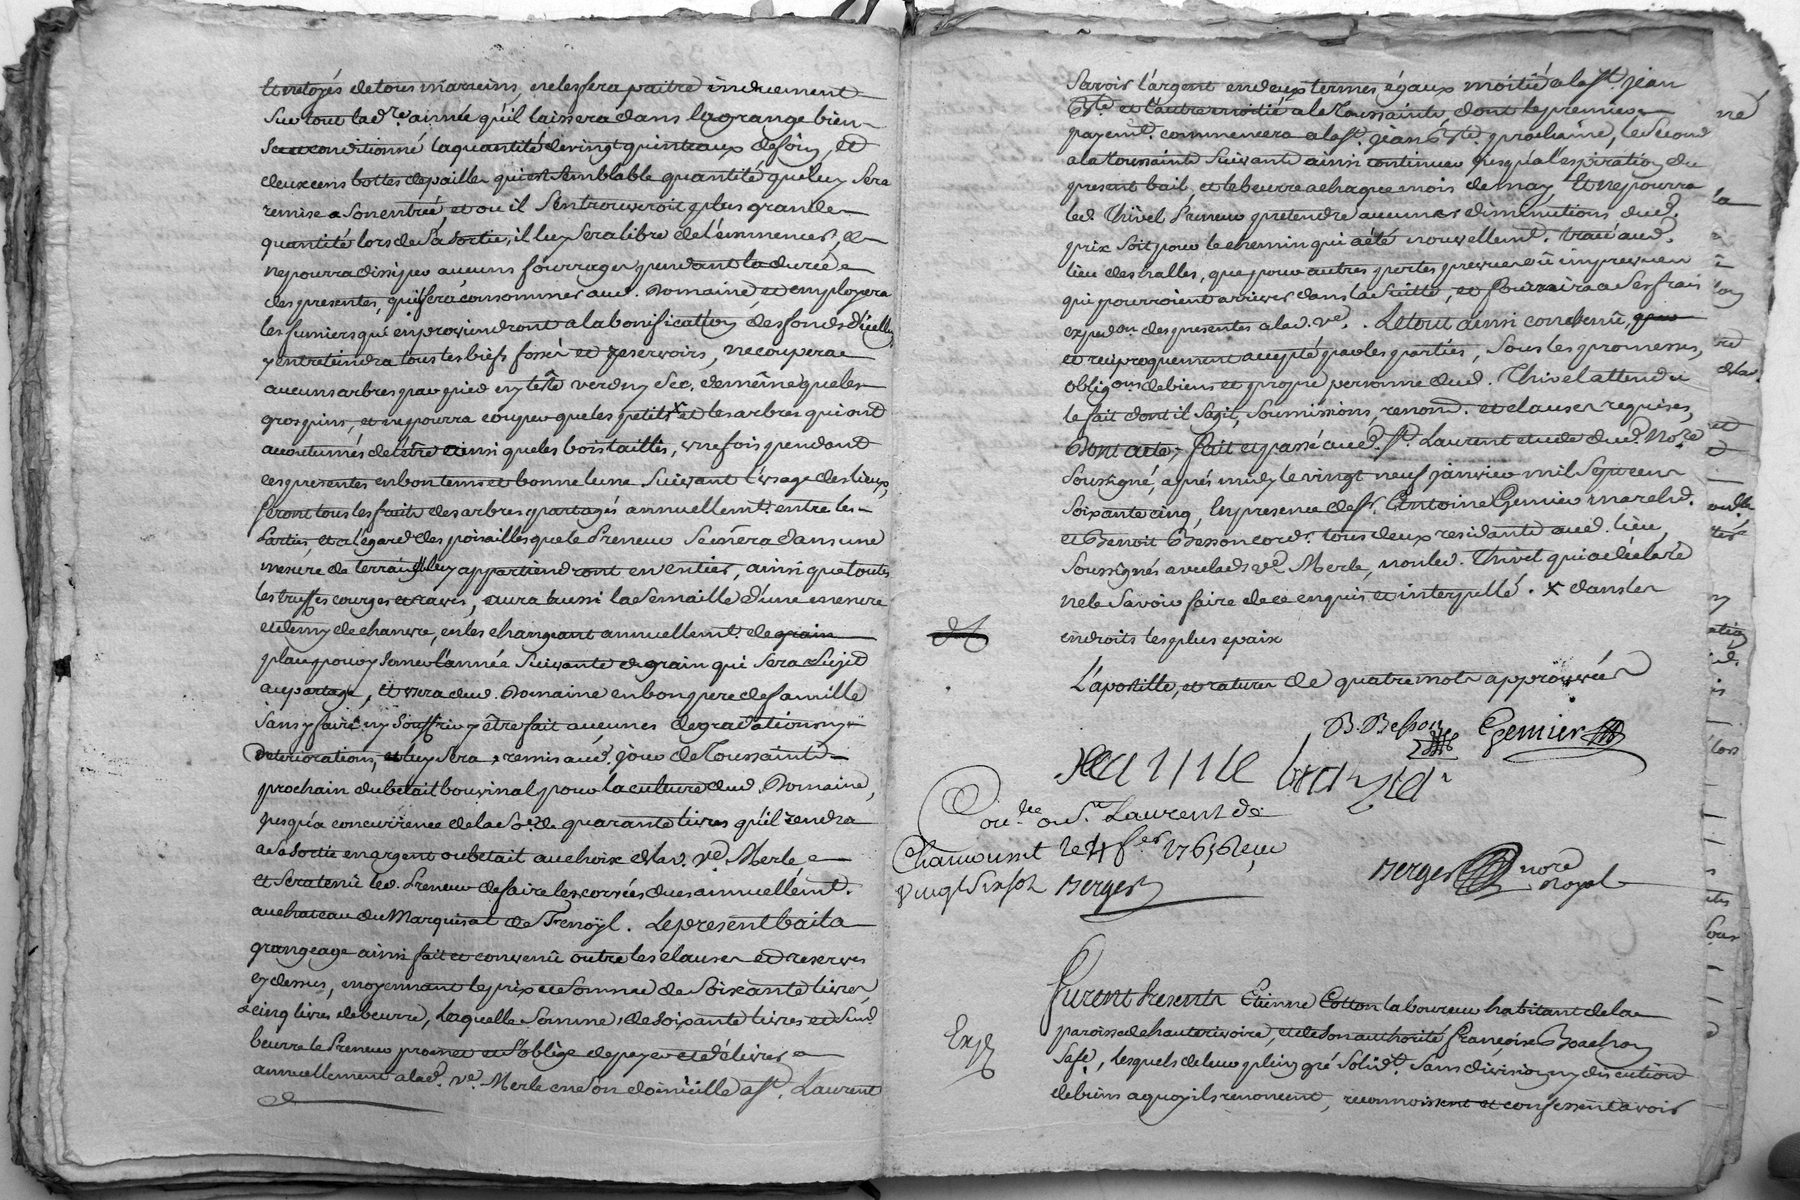 et netoyés de tous marreins, ne les fera paitre induement
Sur tout lad.te année qu'il laissera dans la grange bien
conditionné la quantité de vingt quinteaux de foin, et
deux cens bottes de pailles qui est Semblable quantité que luy Sera
remise a Son entrée, et ou il S'entrouveroit plus grande
quantité lors de Sa Sortie, il luy Sera libre de l'emmener, et
ne pourra dissiper aucuns fourrages pendant la durée
des presentes, qu'il fera consommer aud. Domaine et employera
les fumiers qui en proviendront a la bonification des fonds d'icelluy
y entretiendra tous les biefs fossés et reservoirs, ne coupera
aucuns arbres par pied ny teste verd ny Sec, de même que les
gros pins, et ne pourra couper que les petits x et les arbres qui ont
accoutumés de l'être ainsi que les bois taillis, une fois pendant
ces presentes en bon tems et bonne lune Suivant l'usage des lieux,
Seront tous les fruits des arbres partagés annuellem.t entre les
Parties, et a l'égard des poisailles que le Preneur Semera dans une
mesure de terrain luy appartiendront en entier, ainsi que toutes
les truffes courges et raves, aura aussi la Semaille d'une mesure
et demy de chanvre, en les changeant annuellem.t de grain
place pour y Semer l'année Suivante du grain qui Sera Sujet
au partage, et usera dud. Domaine en bon pere de famille
Sans y faire ny Souffrir y être fait aucunes degradations ny
Deteriorations, et luy Sera remis aud. jour de Toussaint
prochain du betail bouvinal pour la culture dud. Domaine,
jusqu'a concurrence de la Som.e de quarante livres qu'il rendra
a Sa Sortie en argent ou betail au choix de lad. v.e Merle
et Sera tenu led. Preneur de faire les corvées dues annuellem.t
au chateau du Marquisat de Fenoÿl. Le present bail a
grangeage ainsi fait et convenû outre les clauses et reserves
cy dessus, moyennant le prix et Somme de Soixante livres
& cinq livres de beurre, Laquelle Somme de soixante livres et Sud.
beurre le Preneur promet et S'oblige de payer et délivrer
annuellement a lad. v.e Merle en Son domicille a S.t Laurent
Savoir l'argent en deux termes égaux moitié a la S.t Jean
B.te et l'autre moitié a la Toussaint, dont le premier
payem.t commencera a la S.t Jean B.te prochaine, le Second
a la Toussaint Suivante ainsi continuer jusqu'a l'expiration du
present bail, et le beurre a chaque mois de may Et ne pourra
led Thivel Preneur pretendre aucunes diminutions dud.
prix Soit pour le chemin qui a été nouvellem.t tracé aud.
lieu des halles, que pour autres pertes prevues ou imprevues
qui pourroient arriver dans la Suitte, et fournira a Ses frais
exped.on des presentes a lad. v.e. Le tout ainsi convenû,
et reciproquement accepté par les parties, Sous les promesses,
oblig.ons de biens et propre personne dud. Thivel attendu
le fait dont il S'agit, Soumissions, renon.d. et clauses requises,
Dont acte, fait et passé aud. S.t Laurent etude dud. No.re
Soussigné, aprés midy le vingt neuf janvier mil Sept cens
Soixante cinq, En presence de S.r Antoine Gemier march.d
et Benoit Besson cord.r tous deux residants aud. lieu,
Soussignés avec lad. v.e Merle, non led. Thivel qui a declaré
ne le Savoir faire de ce enquis et interpellé. x dans les
endroits les plus epaix
L'apostille, et ratures de quatre mots approuvées
B. Besson Gemier
Con.lle au S.t Laurent de
Chamousset le 4 f.er 1765 Reçu
vingt Six sols Berger
Berger no.re Royal
Furent Presents Etienne Cotton laboureur habitant de la
Exp.
paroisse de hauterivoire, et de Son authorité françoise Bouchon
Sa fe., lesquels de leur plein gré Solid.t Sans division ny discution
de biens a quoy ils renoncent, reconnoissent et confessent avoir